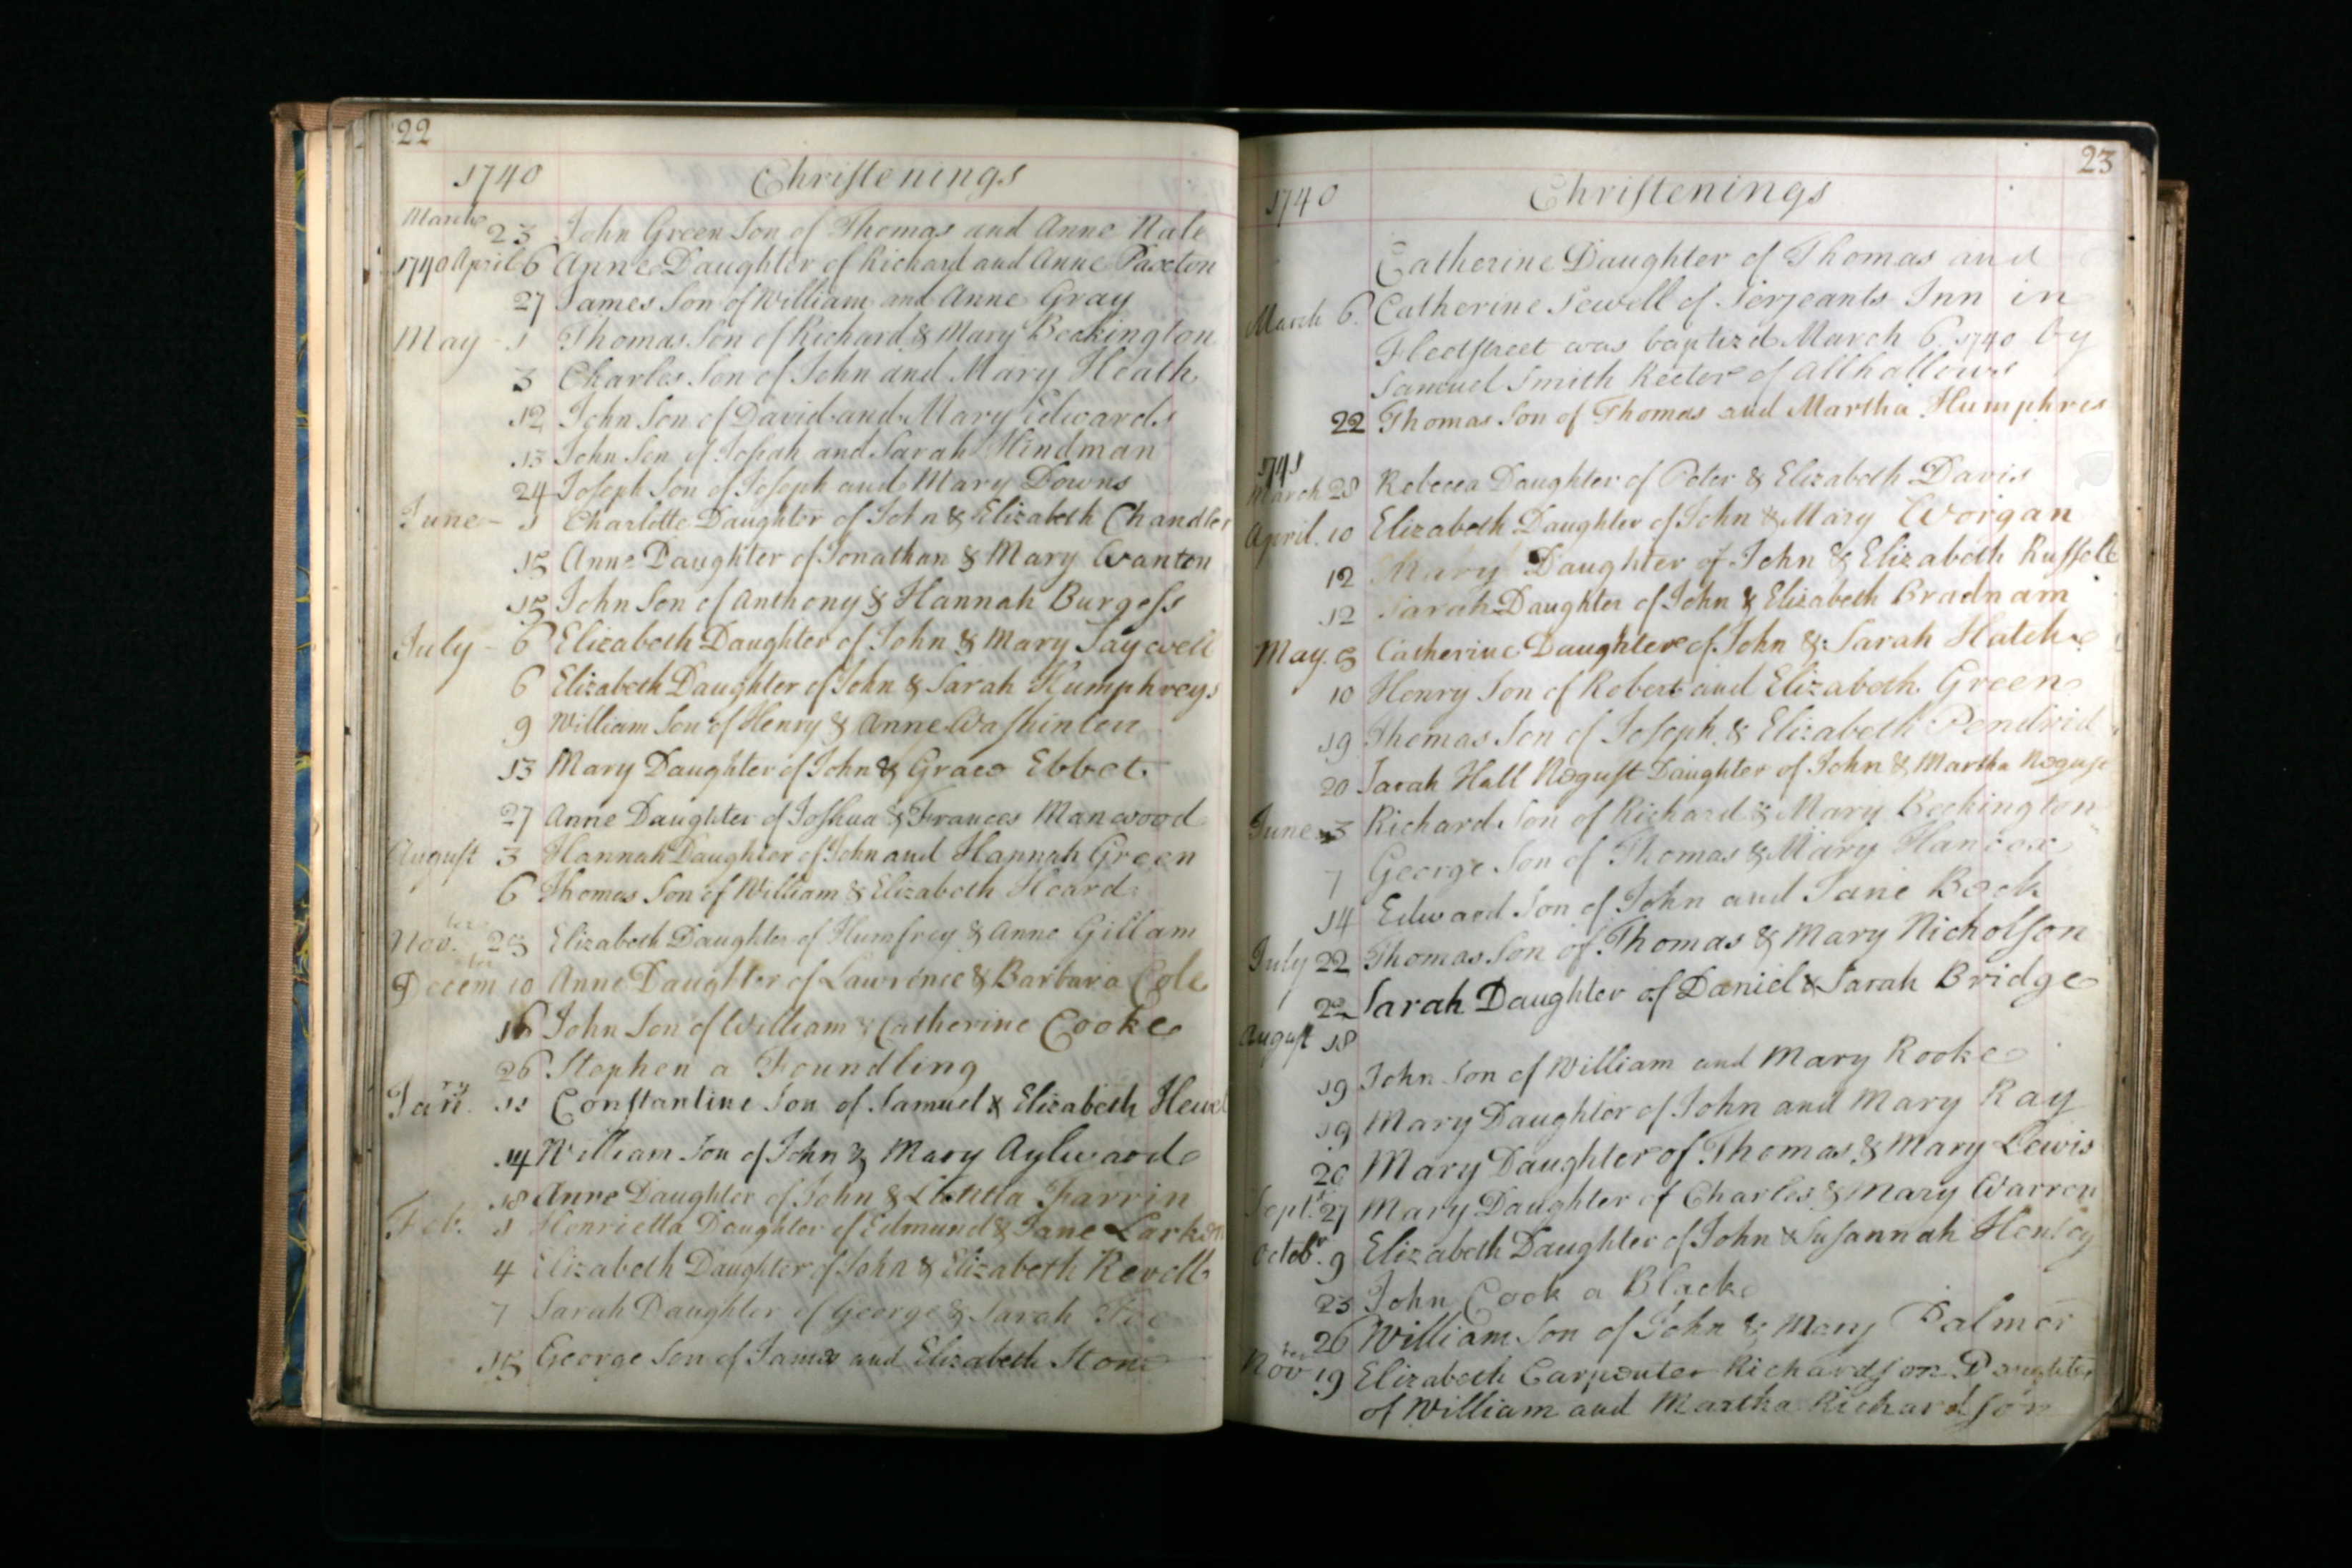 22
1740 Christenings
March 23 John Green Son of Thomas and Anne Hale
1740 April 6 Anne Daughter of Richard and Anne Paxton
27 James Son of William and Anne Gray
May - 1 Thomas Son of Richard & Mary Beckington
3 Charles Son of John and Mary Heath
12 John Son of David and Mary Edwards
13 John Son of Josiah and Sarah Hindman
24 Joseph Son of Joseph and Mary Downs
June - 1 Charlotte Daughter of John & Elizabeth Chandler
15 Anne Daughter of Jonathan & Mary Wanton
15 John Son of Anthony & Hannah Burgess
July - 6 Elizabeth Daughter of John & Mary Saywell
6 Elizabeth Daughter of John & Sarah Humphreys
9 William Son of Henry & Anne Washinton
13 Mary Daughter of John & Grace Ebbet
27 Anne Daughter of Joshua & Frances Manwood
August 3 Hannah Daughter of John and Hannah Green
6 Thomas Son of William & Elizabeth Heard
Nov.ber 25 Elizabeth Daughter of Humfrey & Anne Gillam
Decem.ber 10 Anne Daughter of Lawrence & Barbara Cole
16 John Son of William & Catherine Cooke
26 Stephen a Foundling
Jan.ry 11 Constantine Son of Samuel & Elizabeth
14 William Son of John & Mary Aylward
18 Anne Daughter of John & Farrin
Feb. 1 Henrietta Daughter of Edmund & Jane
4 Elizabeth Daughter of John & Elizabeth Revell
7 Sarah Daughter of George & Sarah
15 George Son of James and Elizabeth Stone
23
1740 Christenings
Catherine Daughter of Thomas and
March 6. Catherine Sewell of Serjeants Inn in
Fleetstreet was baptizd March 6. 1740 by
Samuel Smith Rector of Allhallows
22 Thomas Son of Thomas and Martha Humphres
1741
March 28 Rebecca Daughter of Peter & Elizabeth Davis
April. 10 Elizabeth Daughter of John & Mary Worgan
12 Mary Daughter of John & Elizabeth Russell
12 Sarah Daughter of John & Elizabeth Bradnam
May. 5 Catherine Daughter of John & Sarah Hatch
10 Henry Son of Robert and Elizabeth Green
19 Thomas Son of Joseph & Elizabeth Pendrid
20 Sarah Hall Daughter of John & Martha
June 3 Richard Son of Richard & Mary Beckington
7 George Son of Thomas & Mary Hancox
14 Edward Son of John and Jane
July 22 Thomas Son of Thomas & Mary Nicholson
22 Sarah Daughter of Daniel & Sarah Bridge
August 18
19 John Son of William and Mary Rooke
19 Mary Daughter of John and Mary Ray
20 Mary Daughter of Thomas & Mary Lewis
Sept.r 27 Mary Daughter of Charles & Mary Warren
Octobr. 9 Elizabeth Daughter of John & Susannah Henley
23 John Cook a Black
26 William Son of John & Mary Palmer
Nov.ber 19 Elizabeth Carpenter Richardson Daughter
of William and Martha Richardson